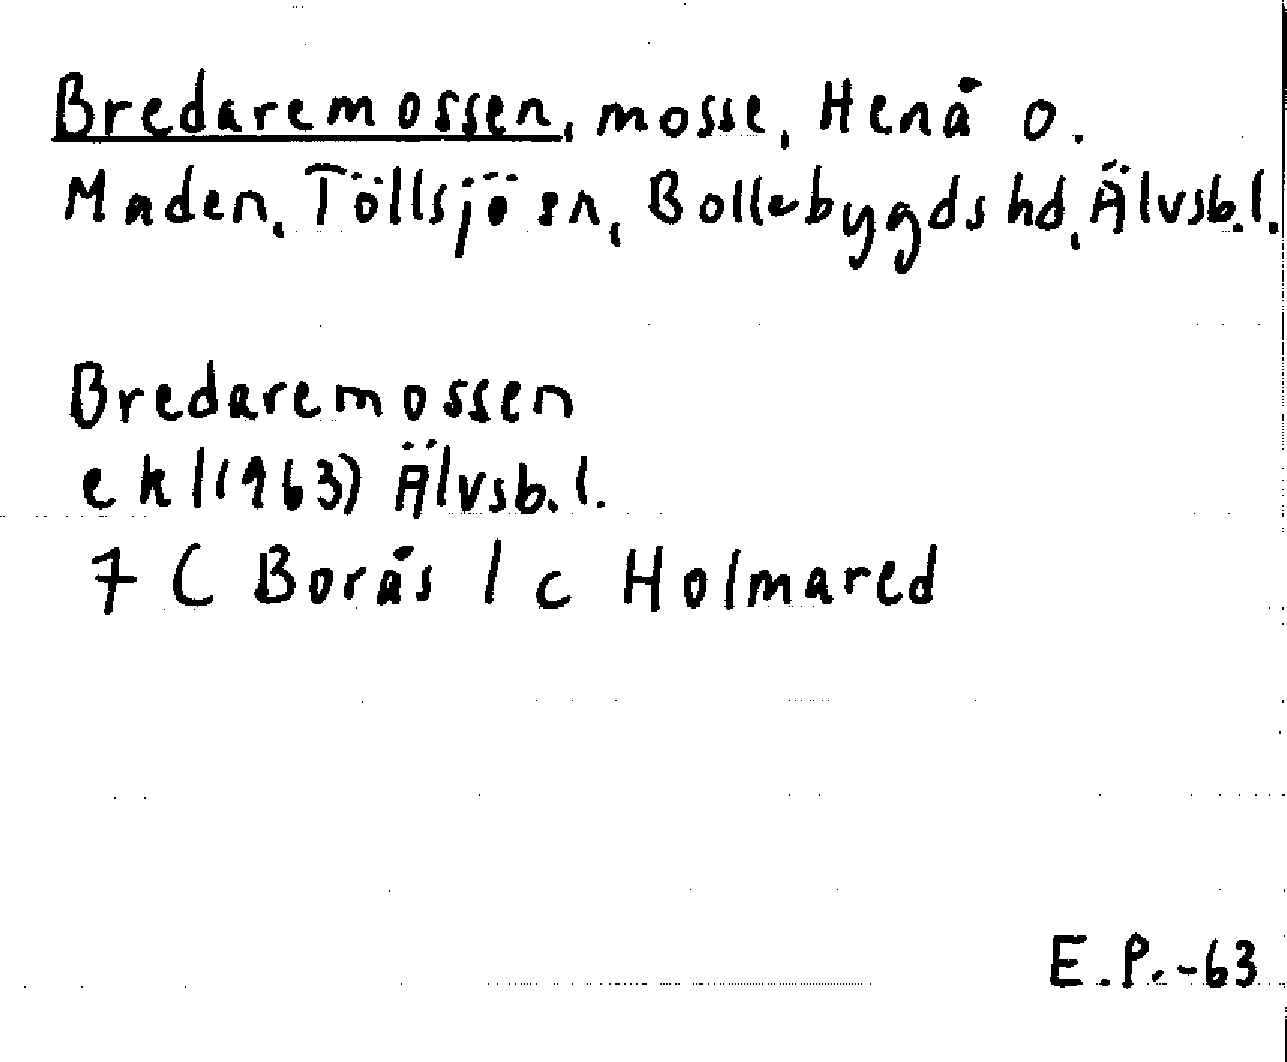 Bredaremossen, mosse, Henå o.
Maden, Töllsjö sn, Bollebygds hd, Älvsb.l.
Bredaremossen
ekl(1963) Älvsb.l.
7 C Borås / c Holmared
E.P.-63